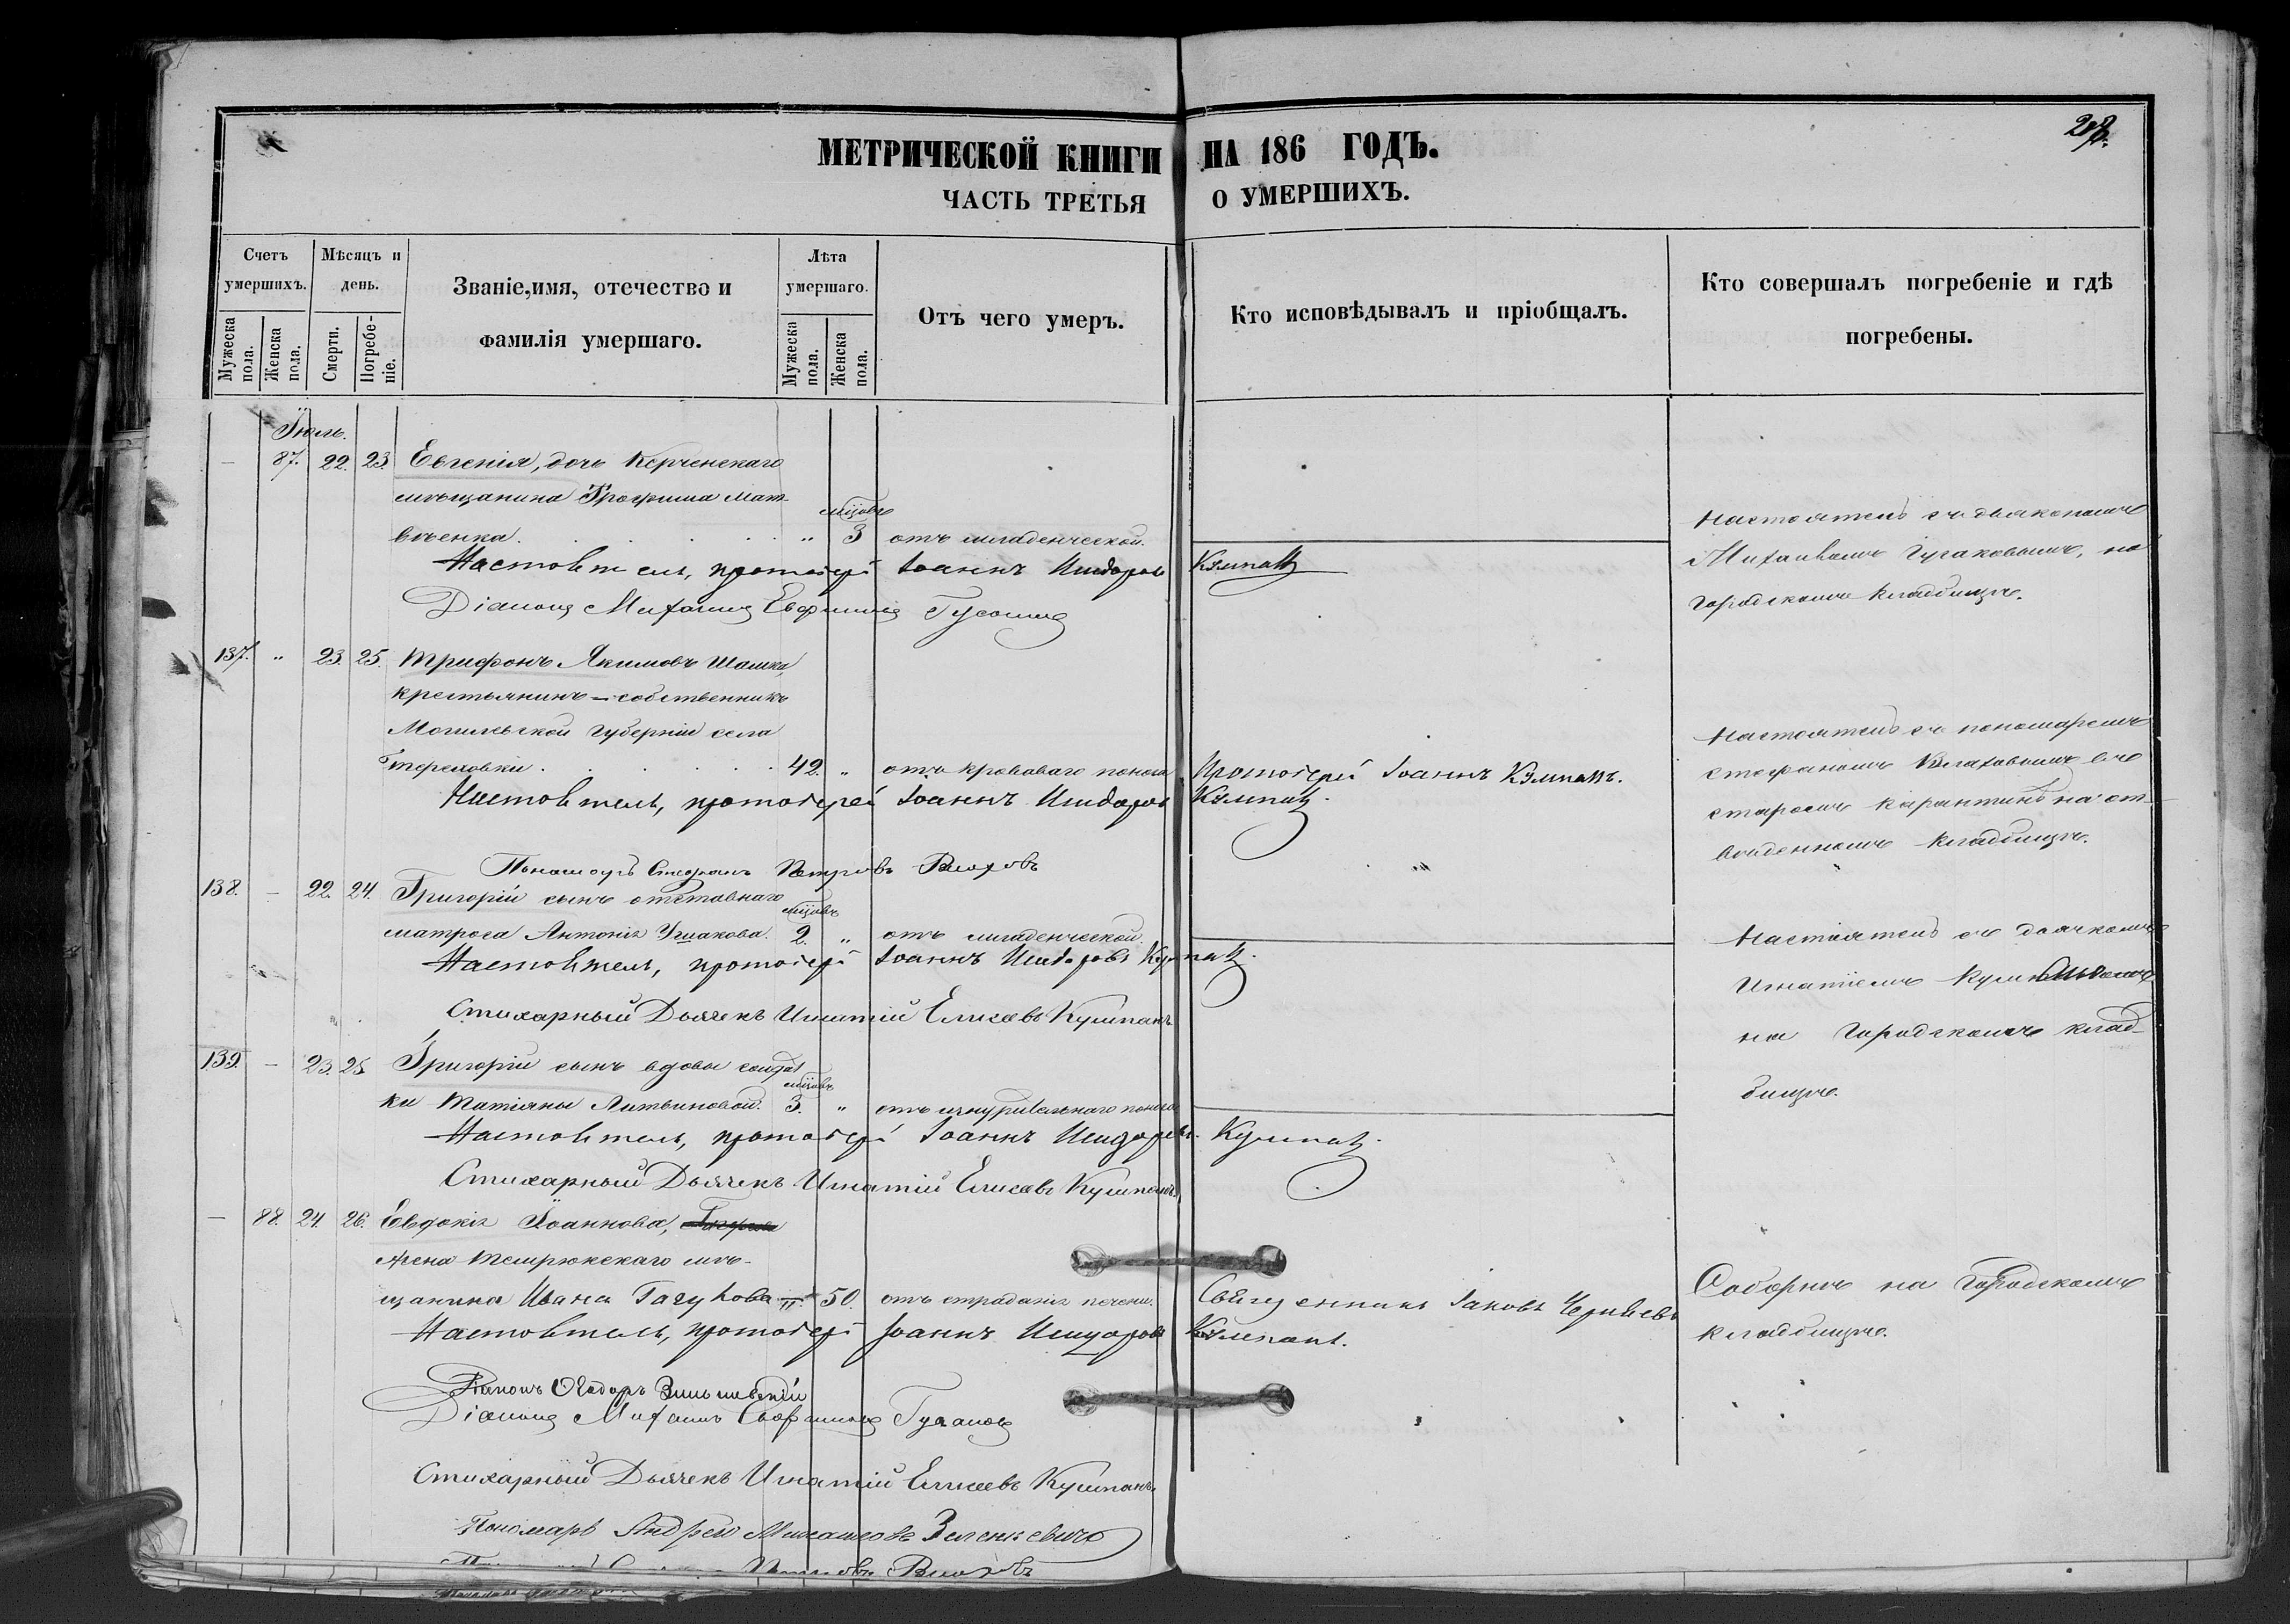 МЕТРИЧЕСКОЙ КНИГИ НА 186 ГОДЪ.
ЧАСТЬ ТРЕТЬЯ О УМЕРШИХЪ.
Счетъ умершихъ.
Мужеска пола.
Женска пола.
Мѣсяцъ и день.
Смерти.
Погребеніе.
Званіе, имя, отечество и
фамилія умершаго.
Лѣта умершаго.
Мужеска пола.
Женска пола.
Отъ чего умеръ.
Кто исповѣдывалъ и пріобщалъ.
Кто совершалъ погребеніе и гдѣ
погребены.
Іюль.
— 87. 22. 23. Евгенія, дочь Керченскаго
мѣщанина Трофима Мат-
вѣенка . . . „ мѣсяцовъ 3 отъ младенческой.
Настоятель съ діакономъ
Михаиломъ Гусаковымъ, на
городскомъ кладбищѣ.
Настоятель, протоіерей Іоаннъ Исидоровъ Кумпанъ
Діаконъ Михаилъ Евфимовъ Гусаковъ
137. „ 23. 25. Трифонъ Якимовъ Шашка,
крестьянинъ—собственникъ
Могилевской губерніи села
Тереховки . . . 42. „ отъ кроваваго поноса Протоіерей Іоаннъ Кумпанъ.
Настоятель съ пономаремъ
Стефаномъ Влаховымъ въ
старомъ карантинѣ на от-
веденномъ кладбищѣ.
Настоятель, протоіерей Іоаннъ Исидоровъ Кумпанъ.
Пономарь Стефанъ Петровъ Влаховъ
138. — 22. 24. Григорій сынъ отставнаго
матроса Антонія Ушакова. мѣсяцовъ 2. „ отъ младенческой.
Настоятель съ дьячкомъ
Игнатіемъ Кумпаномъ
на городскомъ клад-
бищѣ.
Настоятель, протоіерей Іоаннъ Исидоровъ Кумпанъ.
Стихарный Дьячекъ Игнатій Елисеевъ Кумпанъ
139. — 23. 25. Григорій сынъ вдовы солдат
ки Татіяны Литвиновой. мѣсяцовъ 3. „ отъ изнурительнаго поноса
Настоятель, протоіерей Іоаннъ Исидоровъ Кумпанъ.
Стихарный Дьячекъ Игнатій Елисеевъ Кумпанъ
— 88. 24. 26. Евдокія Іоаннова,
жена Темрюкскаго мѣ-
щанина Ивана „ 50. отъ страданія печени. Священникъ Іаковъ
Соборне на Городскомъ
кладбищѣ.
Настоятель, протоіерей Іоаннъ Исидоровъ Кумпанъ.
Діаконъ Ѳеодоръ
Діаконъ Михаилъ Евфимовъ Гусаковъ
Стихарный Дьячекъ Игнатій Елисеевъ Кумпанъ.
Пономарь Андрей Михайловъ Зеленкевичъ
Петровъ Влаховъ